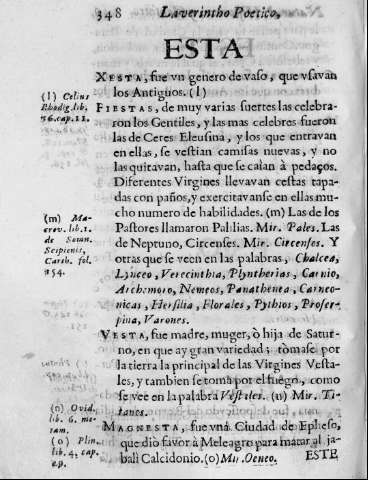 348 Laverintho Poetico,
ESTA
XESTA, fue vn genero de vaso, que vsavan
los Antiguos. (l)
(l) Celius
Rhodig. lib.
26. cap. 11.
FIESTAS, de muy varias suertes las celebra-
ron los Gentiles, y las mas celebres fueron
las de Ceres Eleusina, y los que entravan
en ellas, se vestian camisas nuevas, y no
las quitavan, hasta que se caìan à pedaços.
Diferentes Virgines llevavan cestas tapa-
das con paños, y exercitavanse en ellas mu-
cho numero de habilidades. (m) Las de los
Pastores llamaron Palilias. Mir. Pales. Las
de Neptuno, Circenses. Mir. Circenses. Y
otras que se veen en las palabras, Chalcea,
Lynceo, Verecinthia, Plyntherias, Carnio,
Archemoro, Nemeos, Panathenea, Carneo-
nicas, Hersilia, Florales, Pythios, Proser-
pina, Varones.
(m) Ma-
crov. lib. 1.
de Somn.
Scipionis,
Carth. fol.
154.
VESTA, fue madre, muger, ò hija de Satur-
no, en que ay gran variedad; tòmase por
la tierra la principal de las Virgines Vesta-
les, y tambien se toma por el fuego, como
se vee en la palabra Vestales. (n) Mir. Ti-
tanes.
(n) Ovid.
lib. 6. me-
tam.
MAGNESTA, fue vna Ciudad de Epheso,
que diò favor à Meleagro para matar al ja-
bali Calcidonio. (o) Mir. Oeneo.
(o) Plin.
lib. 4. cap.
ESTE